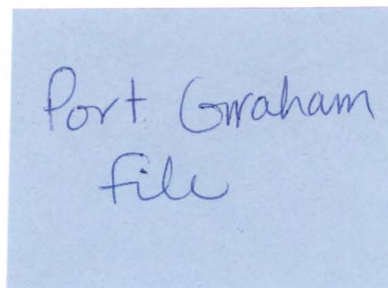 Port Graham
file